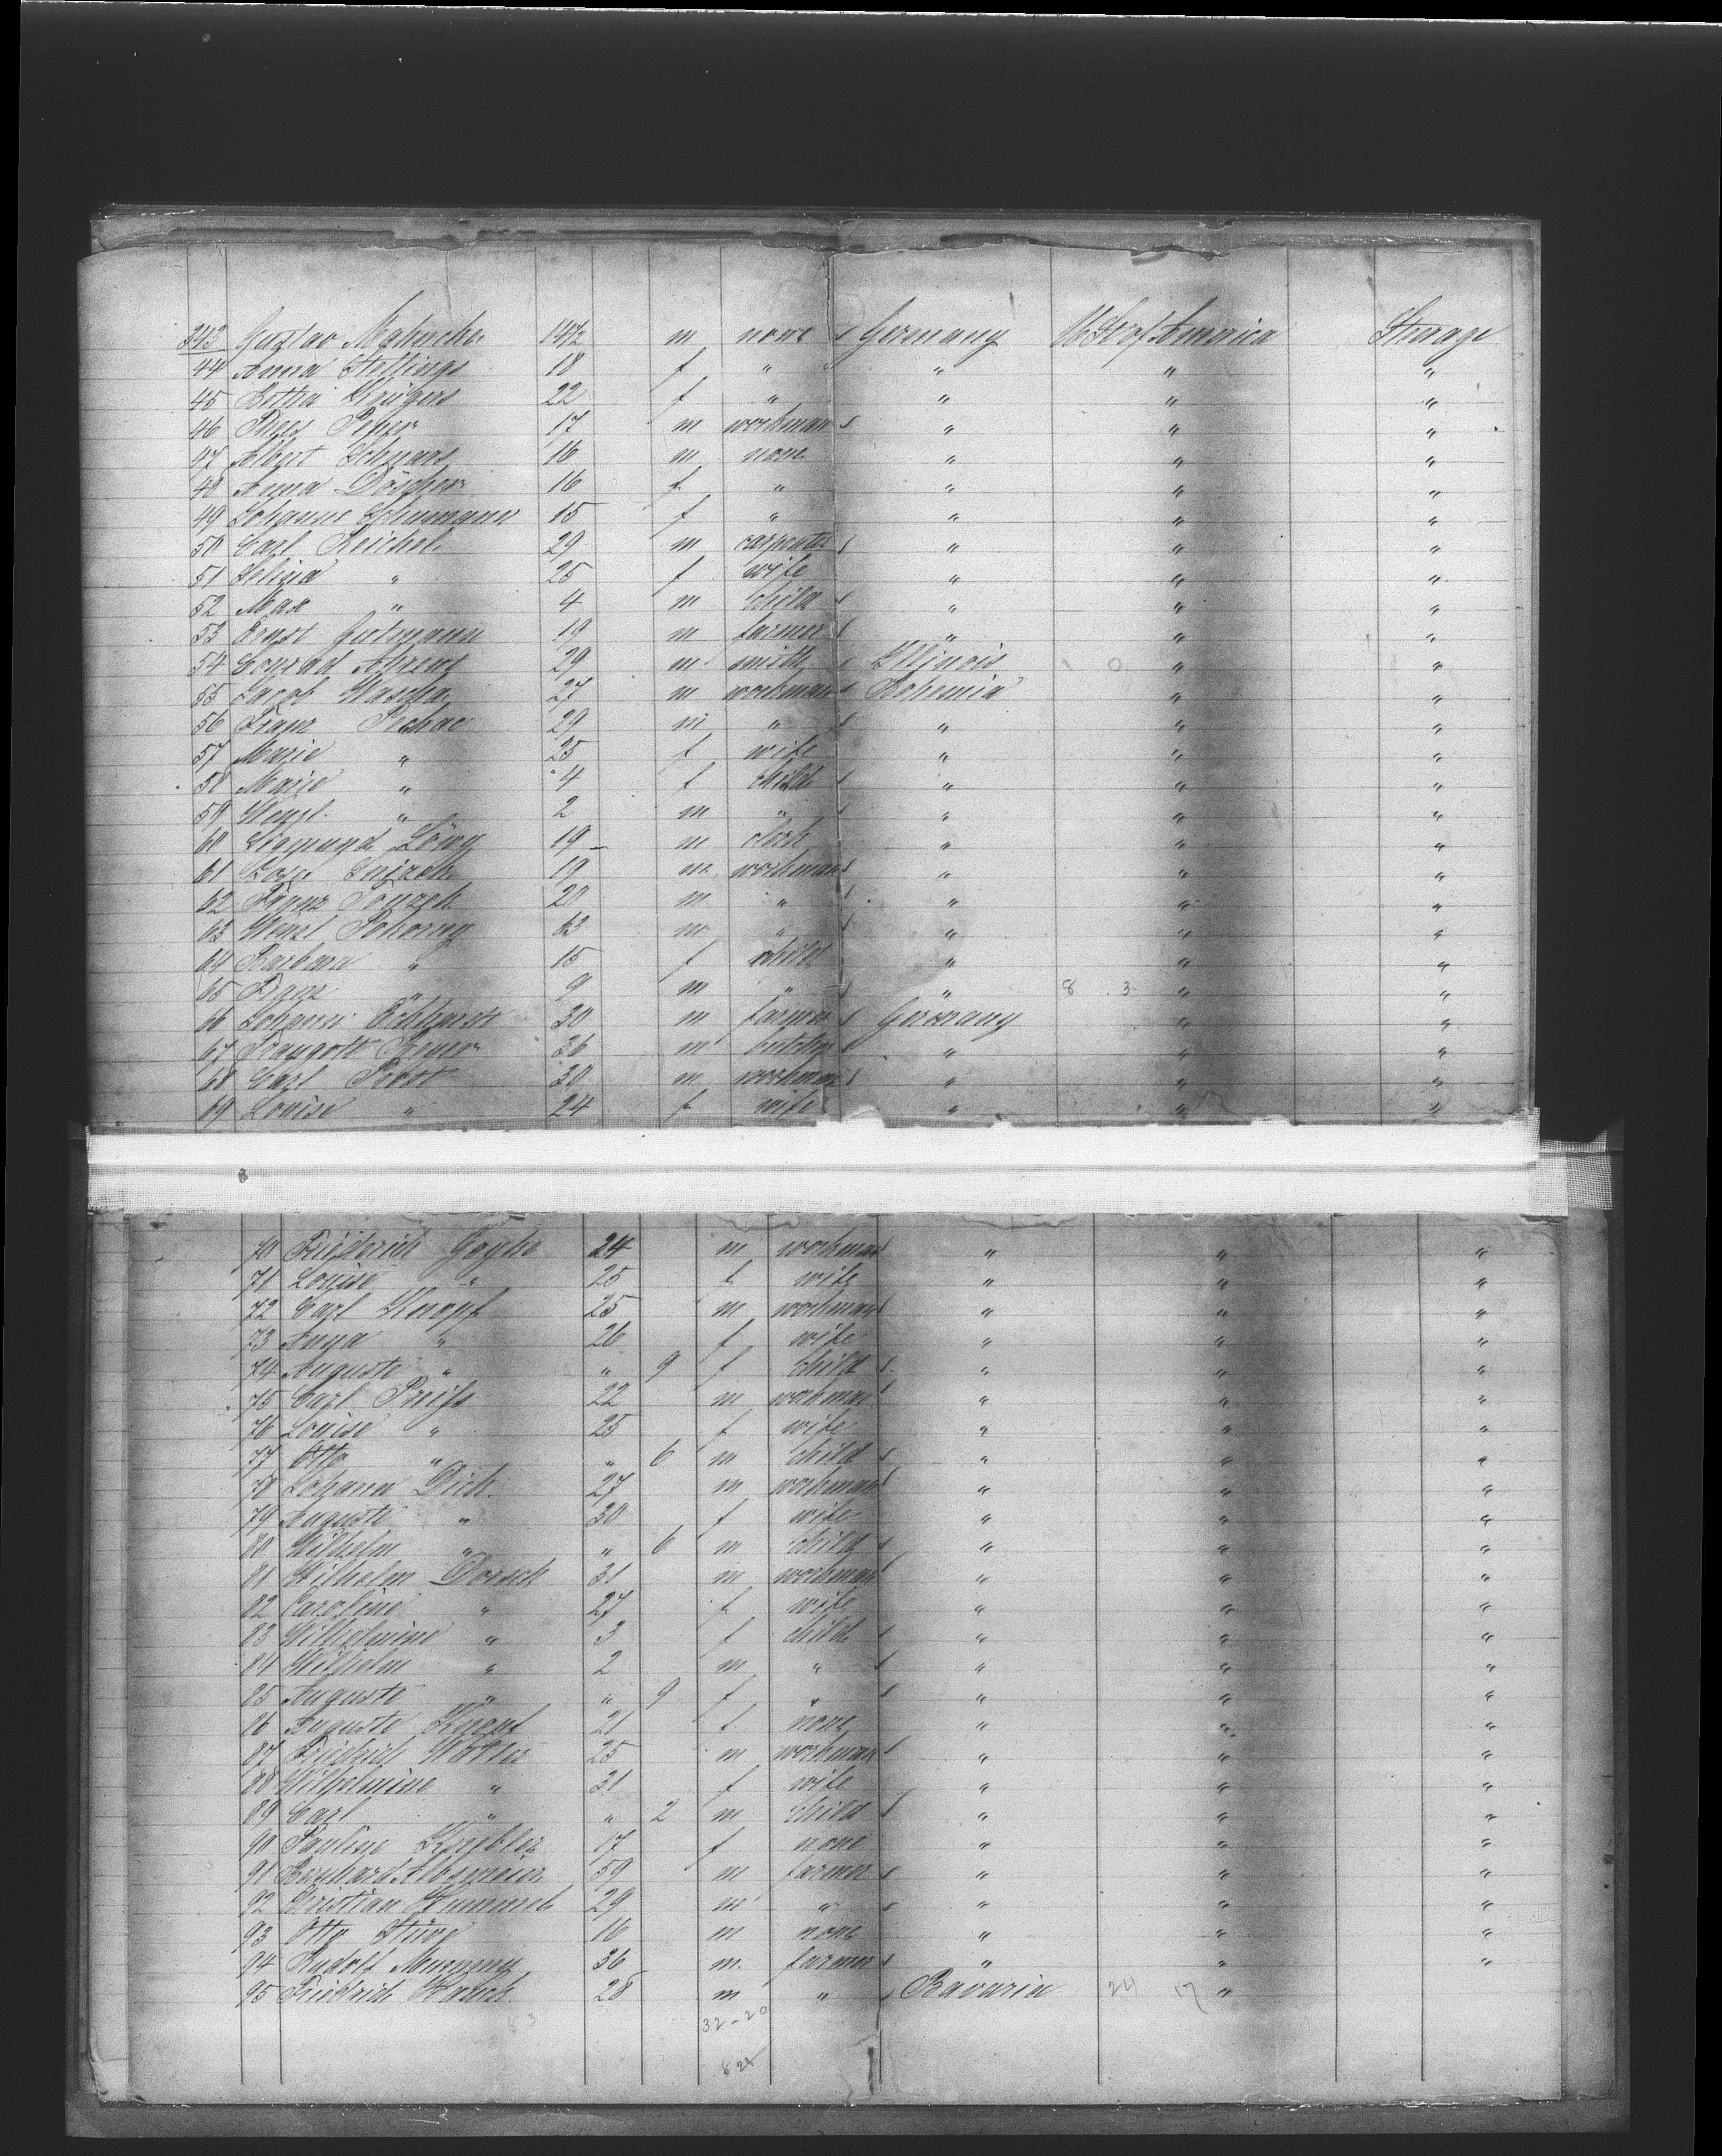 343 Gustav 14½ m none Germany U St of America Steerage
44 Anna Stellings 18 f " " " "
45 22 f " " " "
46 17 m workman " " "
47 Albert 16 m none " " "
48 Anna Döscher 16 f " " " "
49 Johanne Schumann 15 f " " " "
50 Carl Reichel 29 m carpenter " " "
51 Selina " 25 f wife " " "
52 Max " 4 m child " " "
53 Ernst Gutmann 19 m farmer " " "
54 Conrad Ahrens 29 m smith Illinois 0 " "
55 Jacob 27 m workman Bohemia " "
56 Franz Pechac 29 m " " " "
57 Marie " 25 f wife " " "
58 Marie " 4 f child " " "
59 Wenzl " 2 m " " " "
60 Sigmund Löwy 19 m clerk " " "
61 19 m workman " " "
62 Franz 20 m " " " "
63 Wenzl Pokorny 63 m " " " "
64 Barbara " 15 f child " " "
65 Franz " 9 m " " 8 3 " "
66 Johann 30 m farmer Germany " "
67 Traugott Beyer 36 m butcher " " "
68 Carl 30 m workman " " "
69 Louise " 24 f wife " " "
70 Friederich 24 m workman " " "
71 Louise " 25 f wife " " "
72 Carl Knopf 25 m workman " " "
73 Anna " 26 f wife " " "
74 Auguste " " 9 f child " " "
75 Carl Preiss 22 m workman " " "
76 Louise " 25 f wife " " "
77 Otto " " 6 m child " " "
78 Johann Dick 27 m workman " " "
79 Auguste " 30 f wife " " "
80 Wilhelm " " 6 m child " " "
81 Wilhelm Dorsch 31 m workman " " "
82 Caroline " 27 f wife " " "
83 Wilhelmine " 3 f child " " "
84 Wilhelm " 2 m " " " "
85 Auguste " " 9 f " " " "
86 Auguste Knopf 21 f none " " "
87 Friedrich 25 m workman " " "
88 Wilhelmine " 31 f wife " " "
89 Carl " " 2 m child " " "
90 Pauline 17 f none " " "
91 Bernhard 59 m farmer " " "
92 Christian Hummel 29 m " " " "
93 Otto Stüve 16 m none " " "
94 Rudolf 36 m farmer " " "
95 Friedrich 28 m " Bavaria 24 17 "
32-20
824